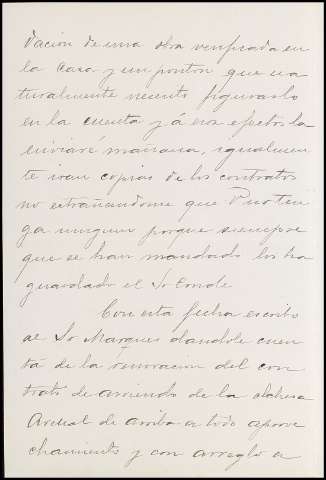 dacion de una obra verificada en
la casa y un ponton que na
turalmente necesito figurarlo
en la cuenta y á esos efectos la
enviaré mañana, igualmen
te iran copias de los contratos
no extrañandome que V no ten
ga ninguno porque siempre
que se han mandado los ha
guardado el Sr Conde
Con esta fecha escribo
al Sr Marques dandole cuen
ta de la renovacion del con
trato de arriendo de la dehesa
de arriba a todo aprove
chamiento y con arreglo a